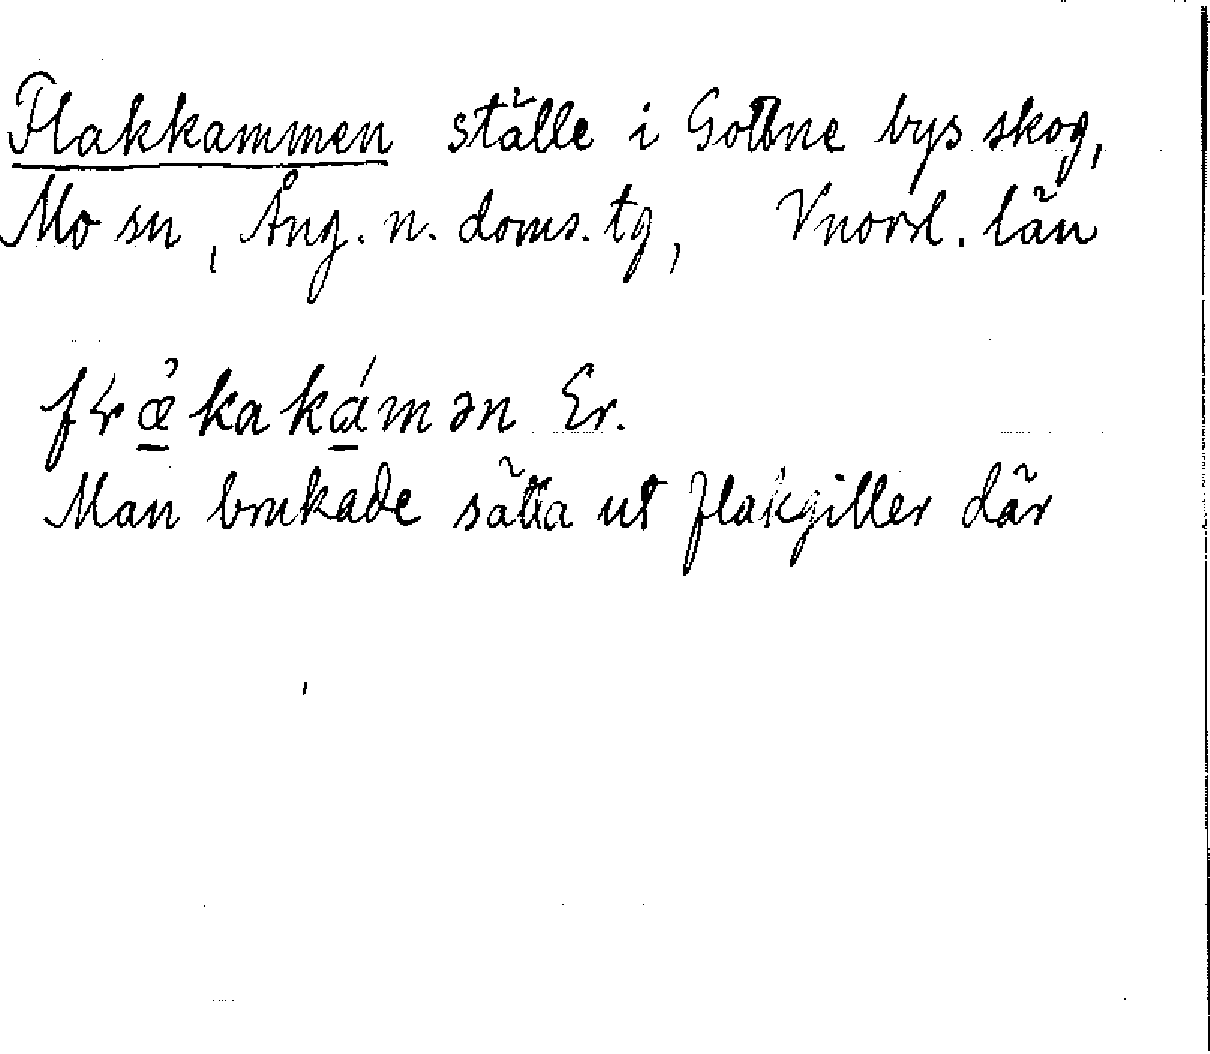 Flakkammen ställe i Gottne bys skog,
Mo sn, Ång. n. doms. tg, Vnorrl. län
Er.
Man brukade sätta ut flakgiller där